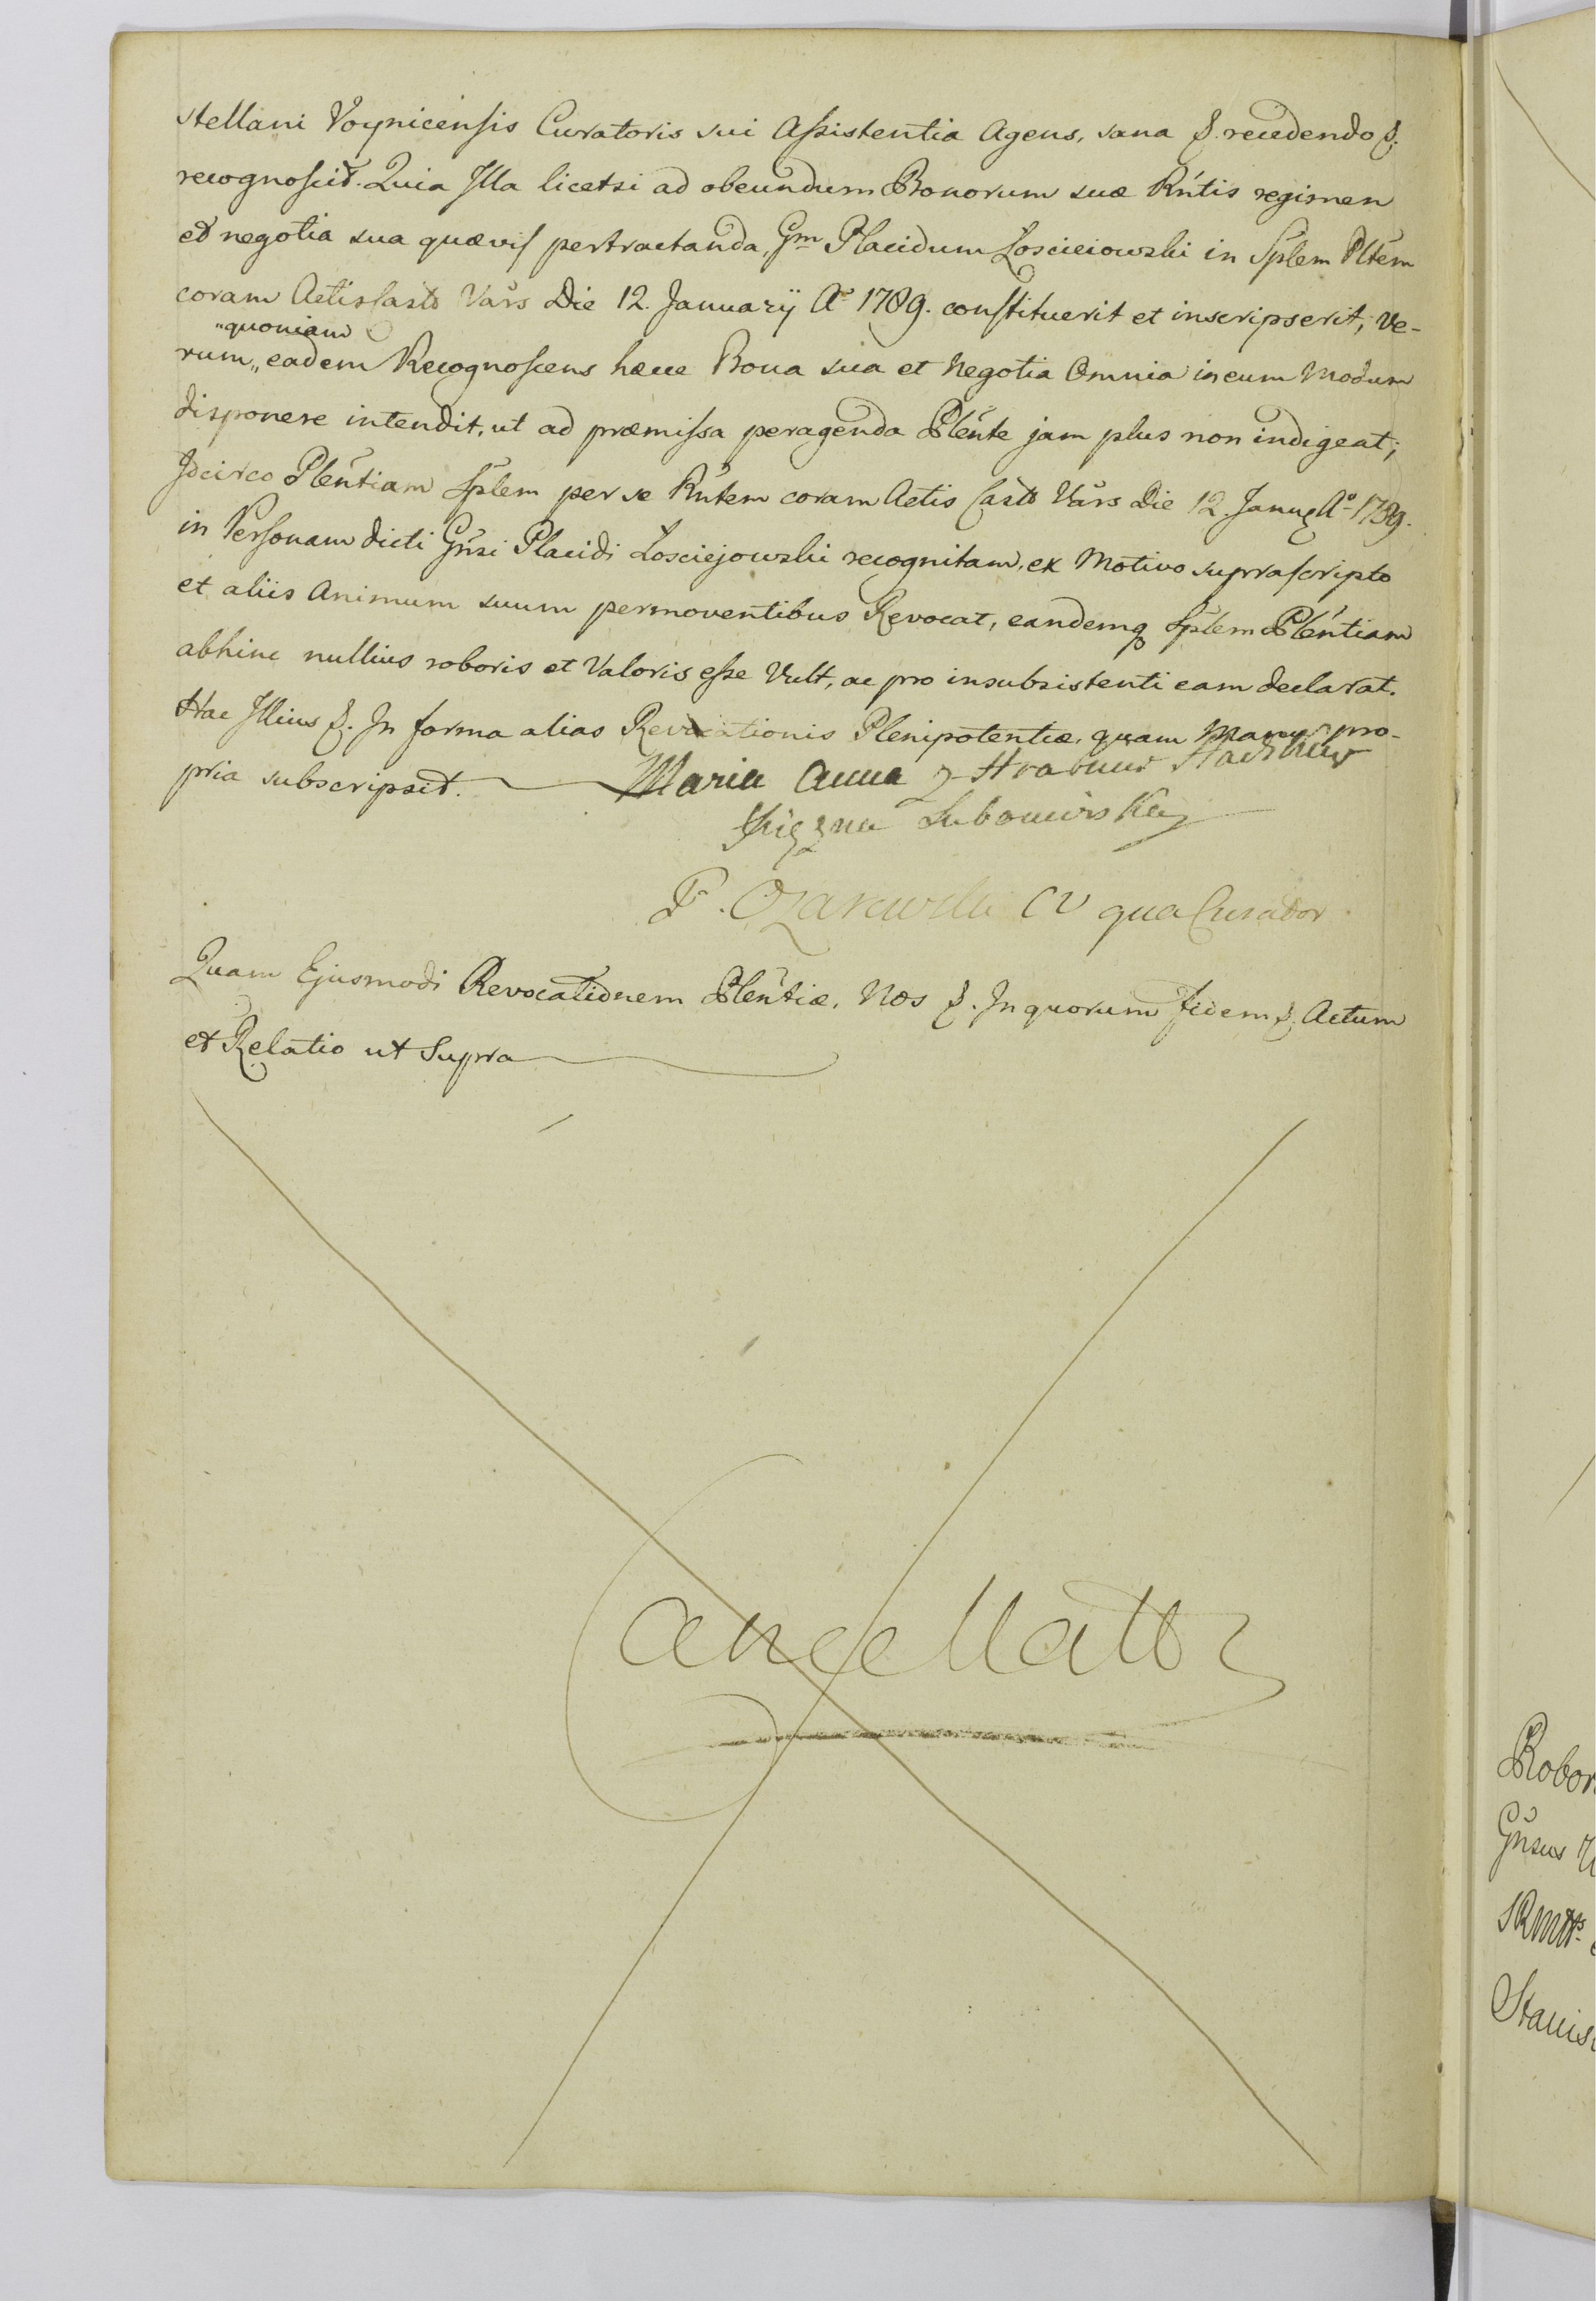 stellani Voynicensis Curatoris sui Assistentia Agens, sana &. recedendo &.
recognoscit. Quia Illa licetsi ad obeundum Bonorum suæ Rntis regimen
et negotia sua quævis pertractanda, Gm Placidum Łosciciowski in Splem Pltem
coram Actis Castr Vars Die 12. Januarÿ Ao 1789. constituerit et inscripserit, Ve-
„quoniam
rum„ eadem Recognoscens hæcce Bona sua et Negotia Omnia in eum Modum
disponere intendit, ut ad præmissa peragenda Plente jam plus non indigeat;
Idcirco Plentiam Splem per se Rntem coram Actis Castr Vars Die 12. Janu Ao 1789.
in Personam dicti Gnsi Placidi Łosciejowski recognitam, ex Motivo suprascripto
et aliis Animum suum permoventibus Revocat, eandemq Splem Plentiam
abhinc nullius roboris et Valoris esse Vult, ac pro insubsistenti eam declarat.
Hac Illius &. In forma alias Revocationis Plenipotentiæ, quam Manu pro-
pria subscripsit. Maria Anna z Hrabiuw
Lubomirska
F. Ożarowski CV qua Curator
Quam Ejusmodi Revocationem Plentiæ, Nos &. In quorum fidem &. Actum
et Relatio ut Supra
Cancellatt
Robor
Gnsus
SRMtts
Stanis